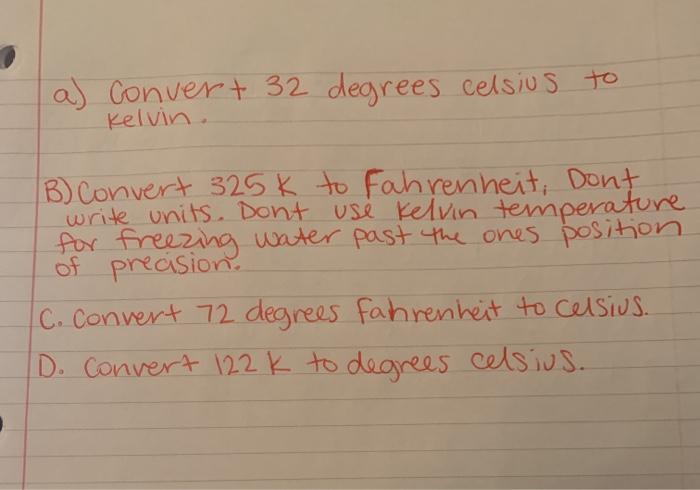 a) Convert 32 degrees celsius to
kelvin.
B) Convert 325 K to Fahrenheit, Dont
write units. Dont use kelvin temperature
for freezing water past the ones position
of precision.
C. Convert 72 degrees Fahrenheit to celsius.
D. Convert 122 K to degrees celsius.